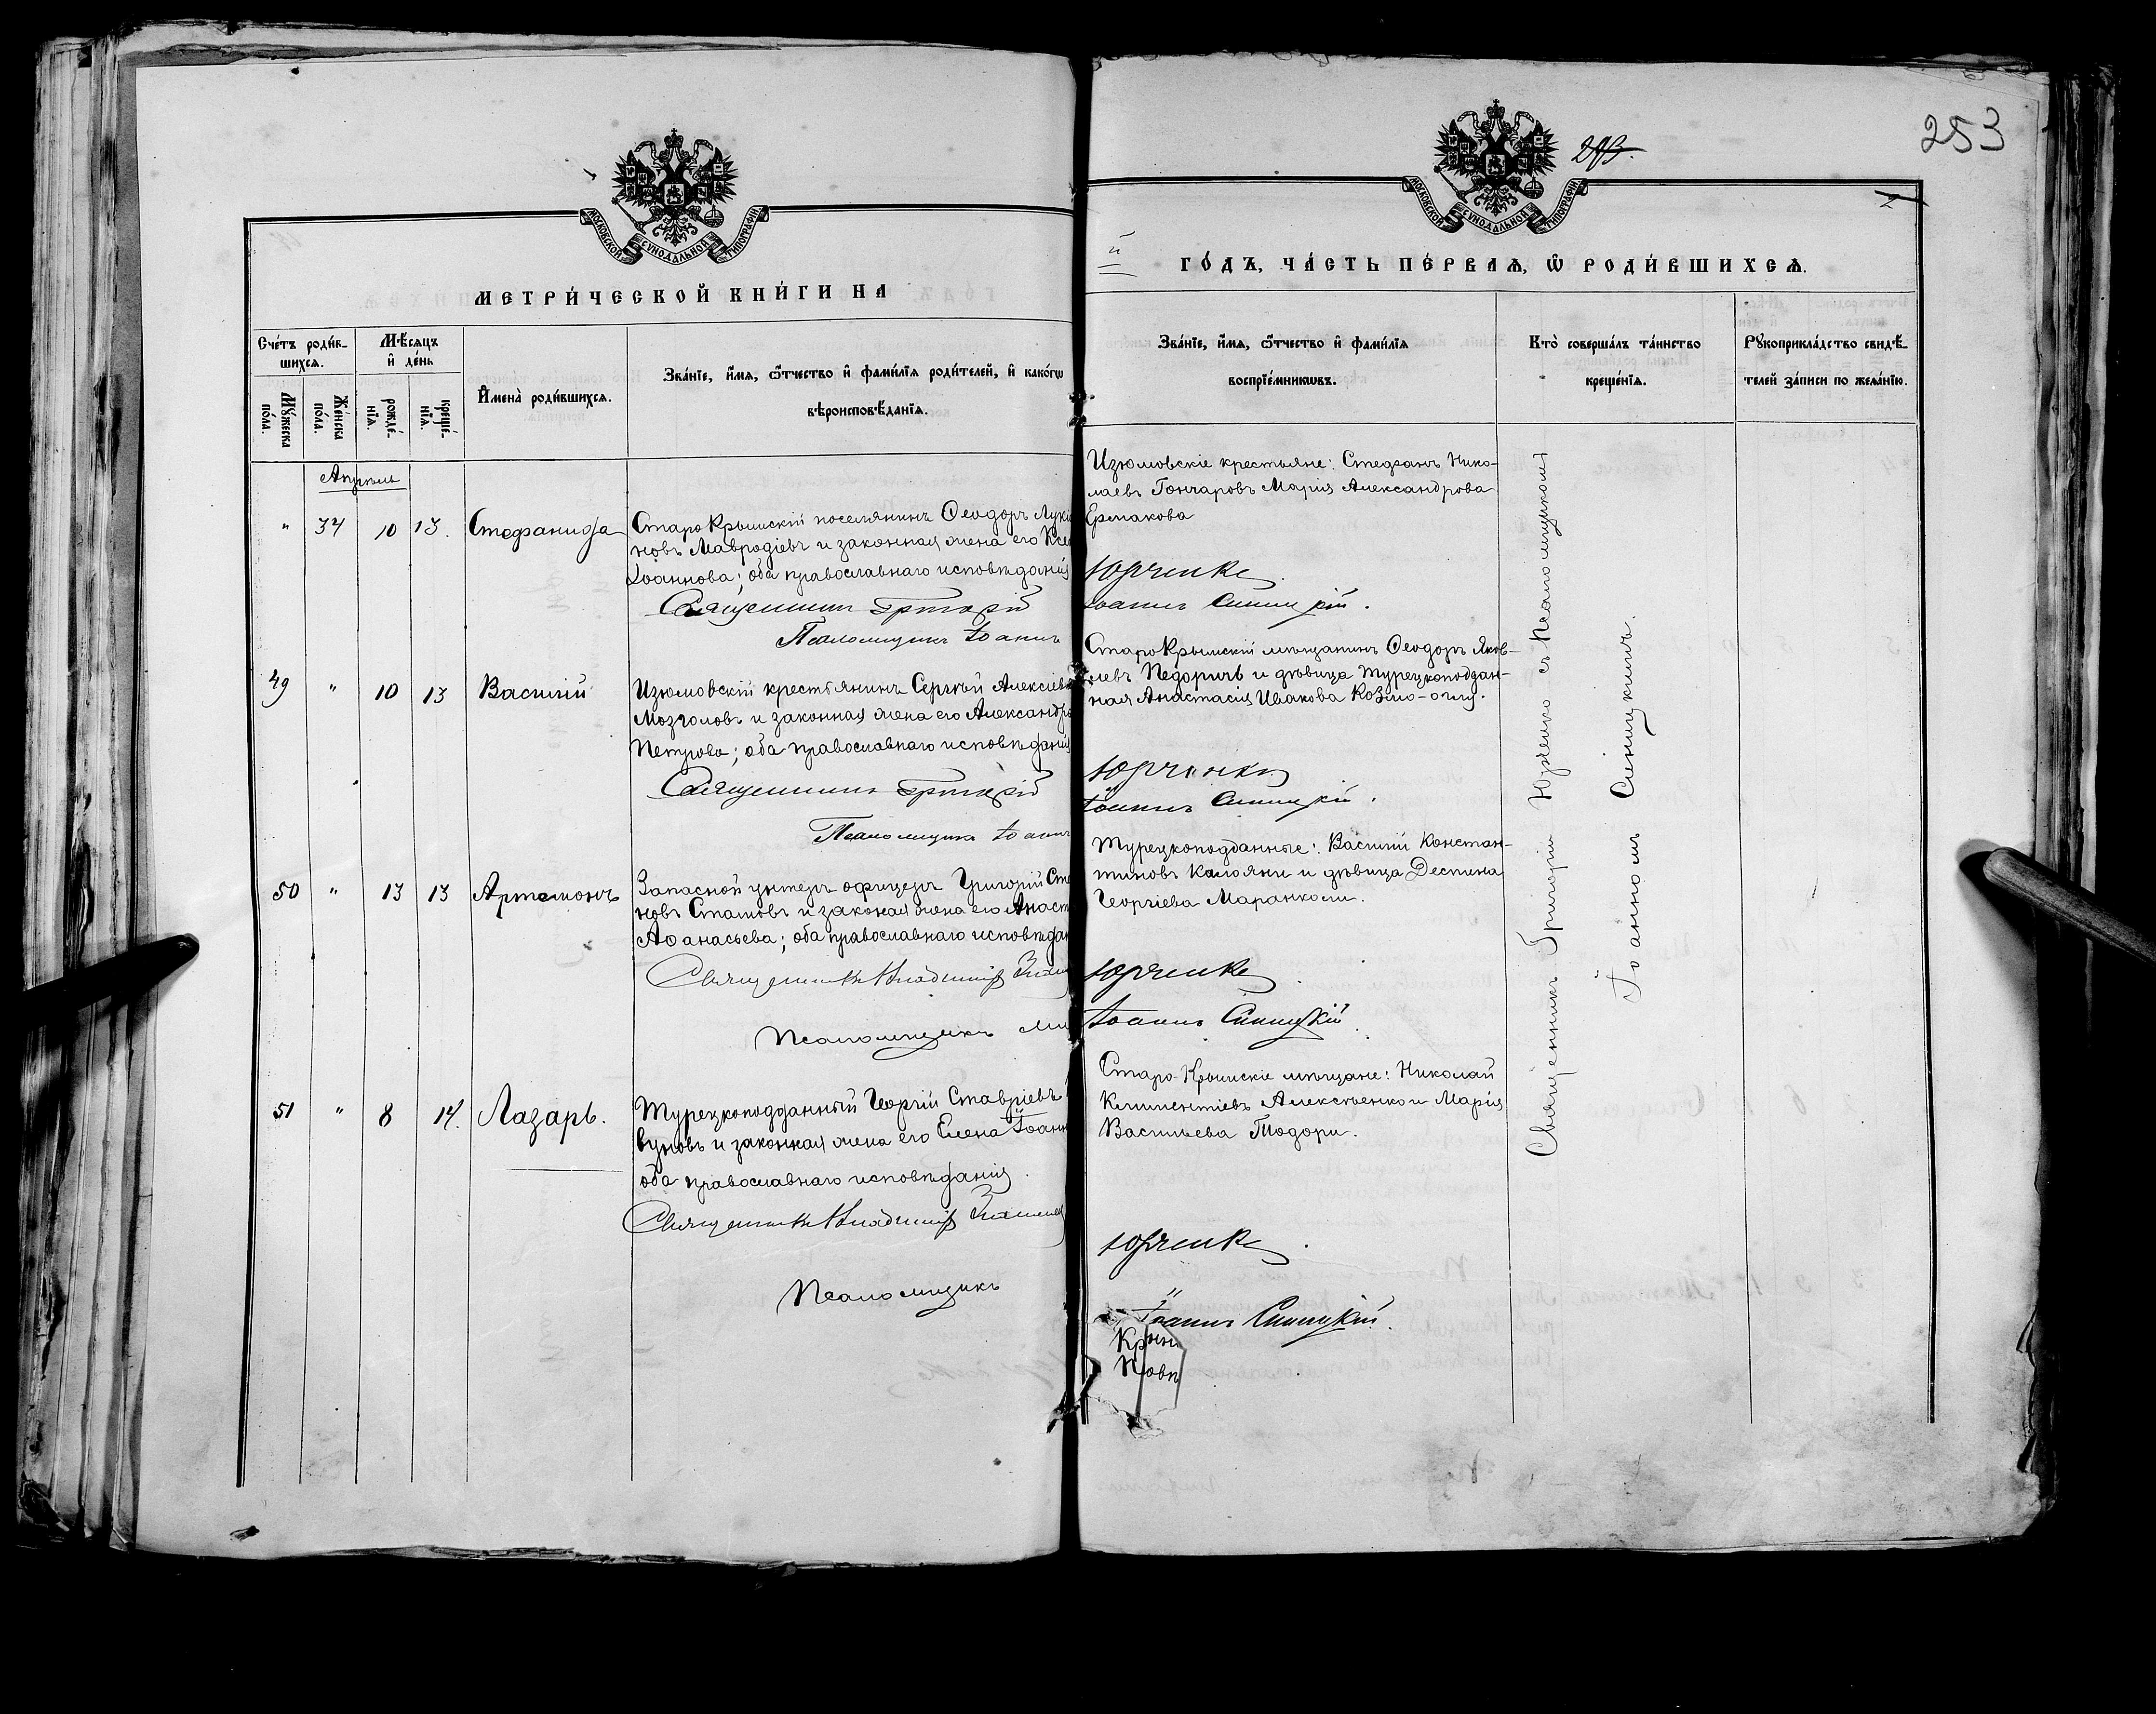 253
МОСКОВСКОЙ СѴНОДАЛЬНОЙ ТИПОГРАФІИ
МЕТРИ́ЧЕСКОЙ КНИ́ГИ НА
Сче́тъ роди́в-
шихсѧ.
Мꙋ́жеска
по́ла.
Же́нска
по́ла.
Мѣ́сѧцъ
и҆ де́нь
рожде́-
нїѧ.
креще́-
нїѧ.
И҆мена̀ роди́вшихсѧ.
Зва́нїе, и҆́мѧ, ѻ҆́тчество и҆ фами́лїѧ роди́телей, и҆ како́гѡ
вѣроисповѣ́данїѧ.
Апрѣль
" 34 10 13. Стефанида
Старо Крымскій поселянинъ Ѳеодоръ Лукіа
новъ Мавродіевъ и законная жена его Ксе
Іоаннова; оба православнаго исповѣданія
Священникъ Григорій
Псаломщикъ Іоаннъ
49 " 10 13 Василій
Изюмовскій крестьянинъ Сергѣй Алексіевъ
Мозголовъ и законная жена его Александра
Петрова; оба православнаго исповѣданія
Священникъ Григорій
Псаломщикъ Іоаннъ
50 " 13 13 Артемонъ
Запасной унтеръ офицеръ Григорій Сте
новъ Стамовъ и законая жена его Анаст
Аѳанасьева; оба православнаго исповѣдан
Священникъ Владиміръ
Псаломщикъ
51 " 8 14. Лазарь.
Турецкоподданный Георгій Ставріевъ
вуновъ и законная жена его Елена Іоанн
оба православнаго исповѣданія.
Священникъ Владиміръ
Псаломщикъ
МОСКОВСКОЙ СѴНОДАЛЬНОЙ ТИПОГРАФІИ
й ГО́ДЪ, ЧА́СТЬ ПЕ́РВАѦ, Ѡ҆ РОДИ́ВШИХСѦ.
Зва́нїе, и҆́мѧ, ѻ҆́тчество и҆ фами́лїѧ
воспрїе́мникѡвъ.
Кто̀ соверша́лъ та́инство
креще́нїѧ.
Рꙋкоприкла́дство свидѣ́-
телей за́писи по жела́нїю.
Изюмовскіе крестьяне: Стефанъ Нико-
лаевъ Гончаровъ Марія Александрова
Ермакова
Юрченко
Іоаннъ Синицкій.
Старо Крымскій мѣщанинъ Ѳеодоръ Яков-
левъ Педоричъ и дѣвица турецкоподдан-
ная Анастасія Ивакова Козмо-оглу.
Юрченко
Іоаннъ Синицкій.
Турецкоподданные: Василій Констан-
тиновъ Калояни и дѣвица Деспина
Георгіева Маранколи.
Юрченко
Іоаннъ Синицкій
Старо-Крымскіе мѣщане: Николай
Климентіевъ Алексѣенко и Марія
Васильева Тодори.
Юрченко
Іоаннъ Синицкій.
Священникъ Григорій Юрченко съ Псаломщикомъ
Іоанномъ Синицкимъ.